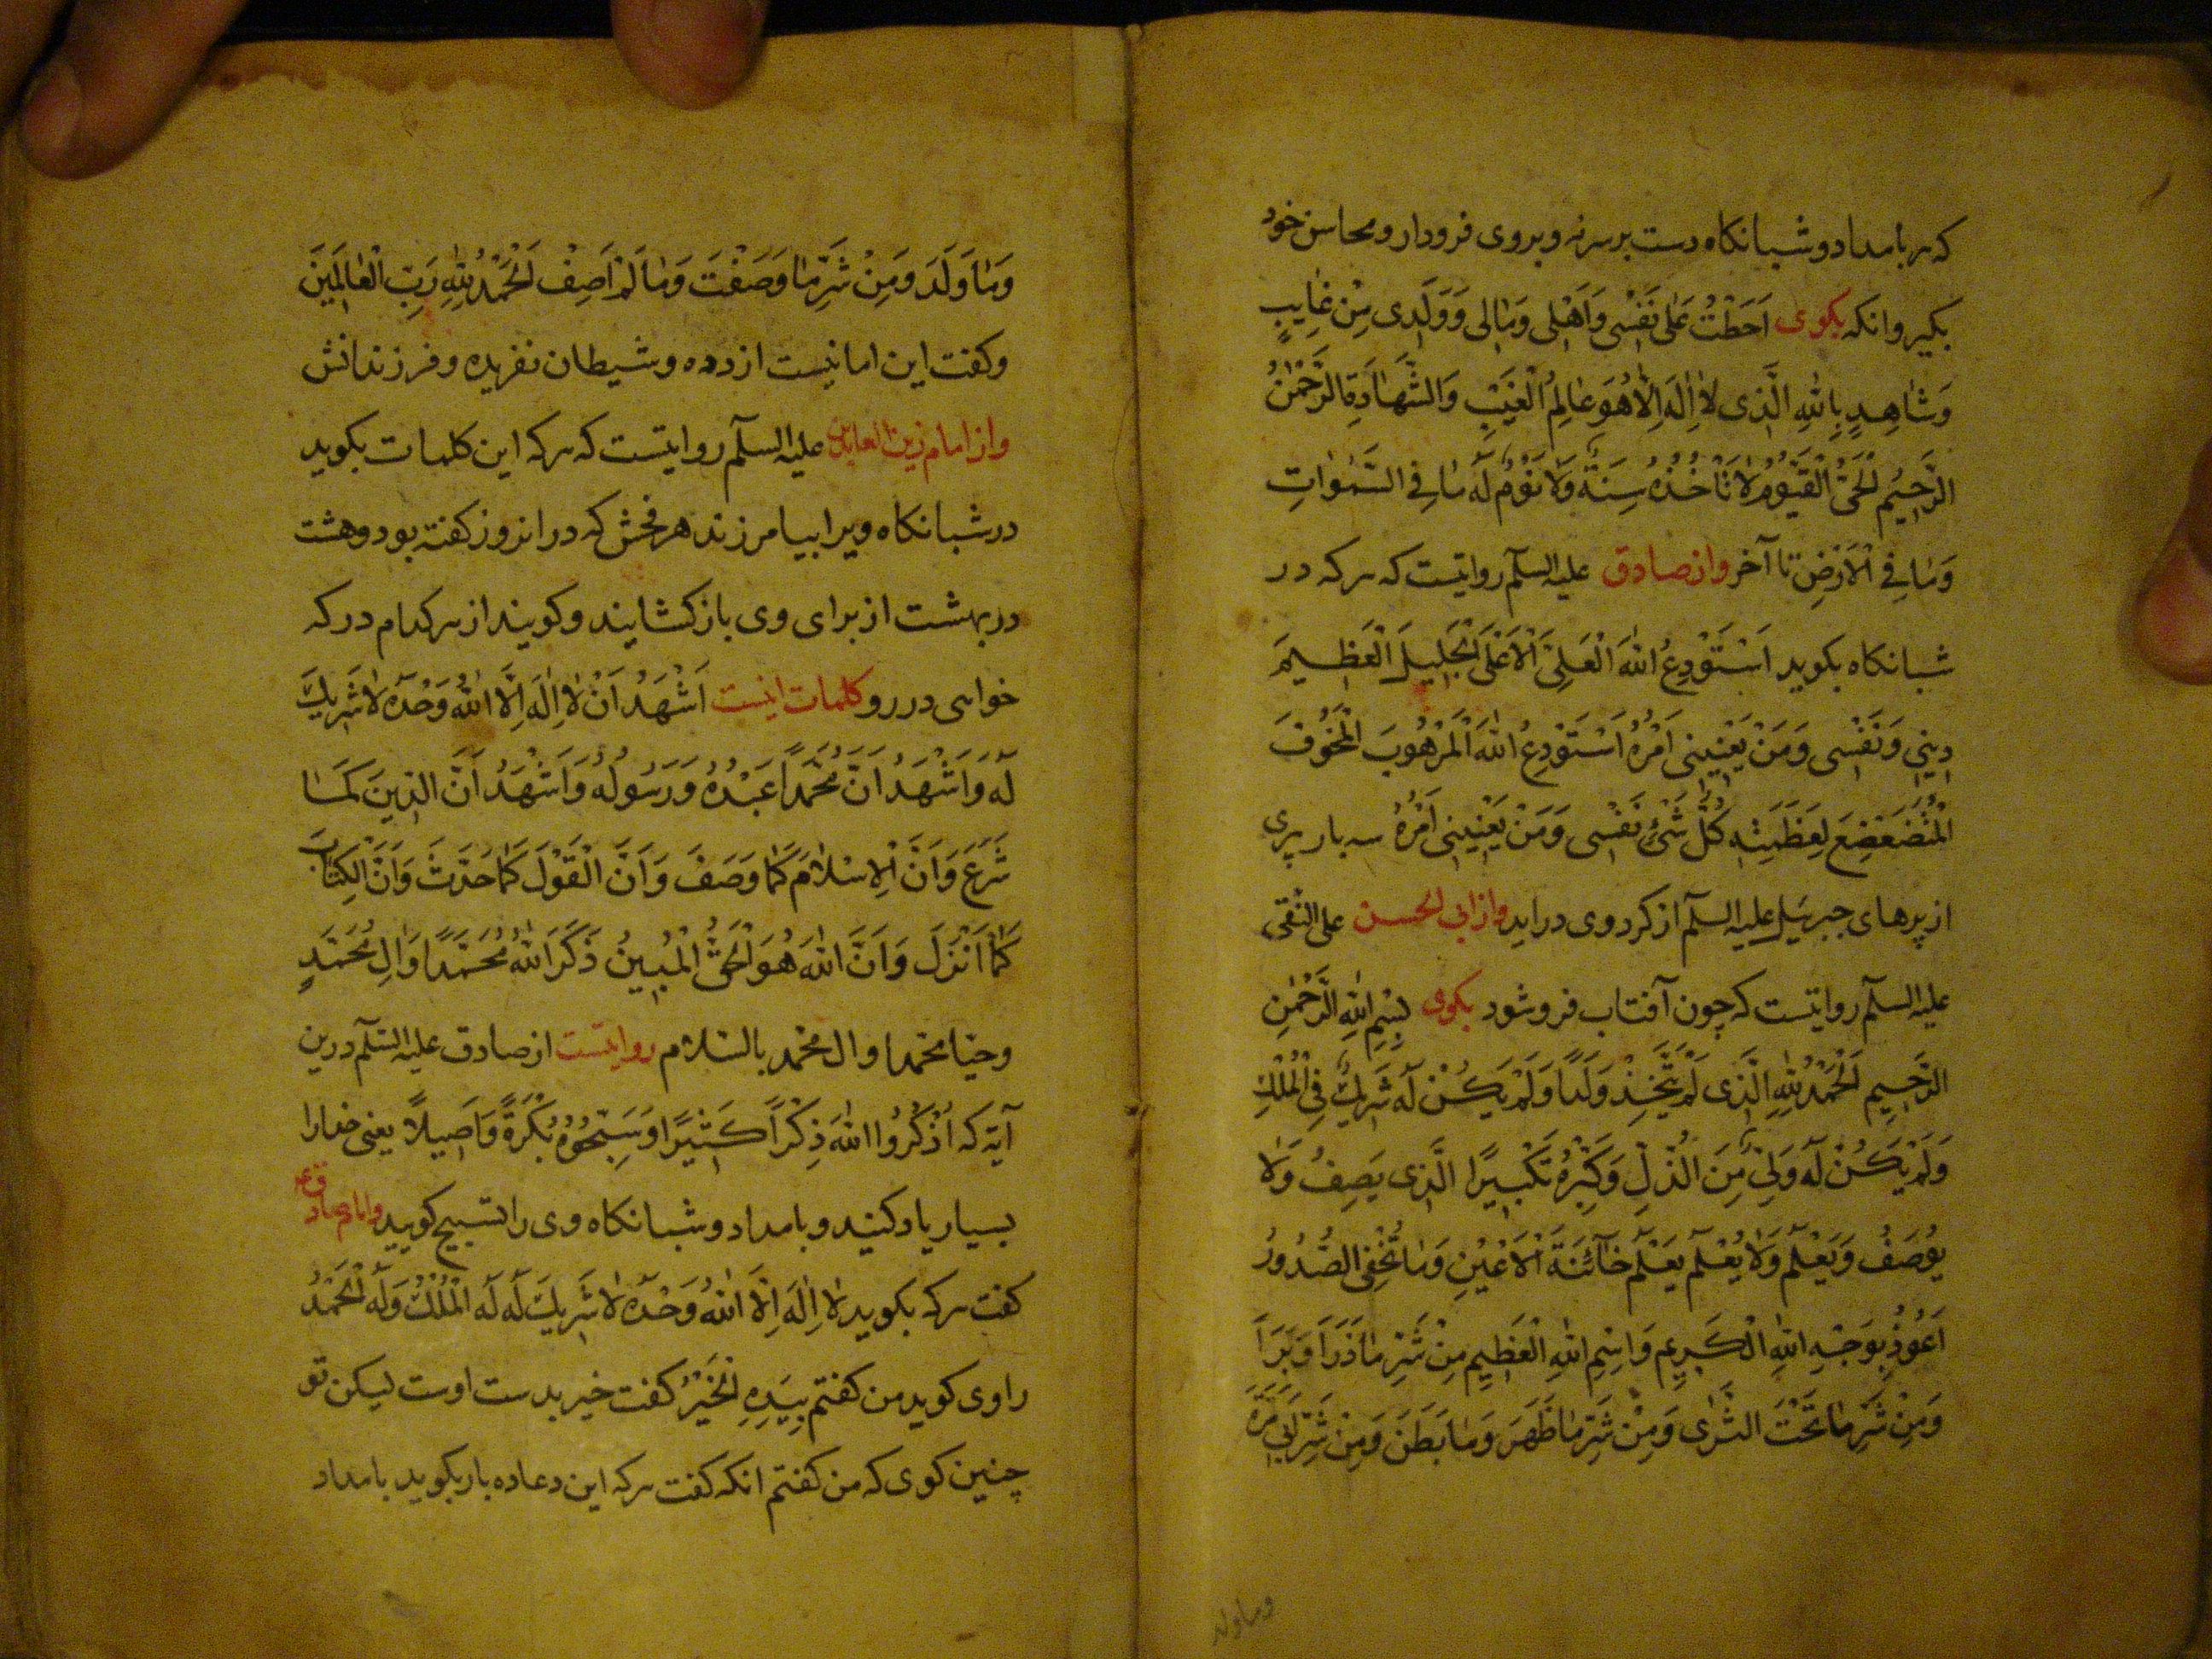 که هر بامداد و شبانکاه دست بر سر نه و بروی فرودار و محاسن خود
بکیر وانکه بکوی اَحَطْتُ عَلٰی نَفْسی وَاَهْلی وَمٰالی وَوَلَدی مِنْ غٰایِبٍ
وَشٰاهِدٍ بِاللّٰهِ الَّذی لاٰ اِلٰهَ اِلاّٰ هُوَ عٰالِمُ الْغَیْبِ وَالشَّهٰادَةِ الرَّحْمٰنُ
الرَّحیمُ الْحَیُّ الْقَیُّومُ لاٰ تَاْخُذُهُ سِنَةٌ وَلاٰ نَوْمٌ لَهُ مٰا فِی السَّمٰوٰاتِ
وَمٰا فِی الْاَرْضِ تا آخر واز صادق علیه السلم روایتست که هر که در
شبانکاه بکوید اَسْتَوْدِعُ اللّٰهَ الْعَلِیَّ الْاَعْلَی الْجَلیلَ الْعَظیمَ
دینی وَنَفْسی وَمَنْ یَعْنینی اَمْرُهُ اَسْتَوْدِعُ اللّٰهَ الْمَرْهُوبَ الْمَخُوفَ
الْمُتَضَعْضِعَ لِعَظَمَتِهِ کُلُّ شَیْءٍ نَفْسی وَمَنْ یَعْنینی اَمْرُهُ سه بار پری
از پرهای جبرئیل علیه السلم از کرد وی دراید واز ابی الحسن علی النقی
علیه السلم روایتست که چون آفتاب فرو شود بکوی بِسْمِ اللّٰهِ الرَّحْمٰنِ
الرَّحیمِ اَلْحَمْدُ لِلّٰهِ الَّذی لَمْ یَتَّخِذْ وَلَداً وَلَمْ یَکُنْ لَهُ شَریکٌ فِی الْمُلْکِ
وَلَمْ یَکُنْ لَهُ وَلِیٌّ مِنَ الذُّلِّ وَکَبِّرْهُ تَکْبیرًا الَّذی یَصِفُ وَلاٰ
یُوصَفُ وَیَعْلَمُ وَلاٰ یُعْلَمُ یَعْلَمُ خٰآئِنَةَ الْاَعْیُنِ وَمٰا تُخْفِی الصُّدُورُ
اَعُوذُ بِوَجْهِ اللّٰهِ الْکَریمِ وَاِسْمِ اللّٰهِ الْعَظیمِ مِنْ شَرِّ مٰا ذَرَاَ وَبَرَاَ
وَمِنْ شَرِّ مٰا تَحْتَ الثَّرٰی وَمِنْ شَرِّ مٰا ظَهَرَ وَمٰا بَطَنَ وَمِنْ شَرِّ اَبی مُرَّةَ
وماولد
وَمٰا وَلَدَ وَمِنْ شَرِّ مٰا وَصَفْتَ وَمٰا لَمْ اَصِفْ اَلْحَمْدُ لِلّٰهِ رَبِّ الْعٰالَمینَ
وکفت این امانیست از دده و شیطان نفریده و فرزندانش
واز امام زین العابدین علیه السلم روایتست که هر که این کلمات بکوید
در شبانکاه ویرا بیامرزند هر فحش که در انروز کفته بود وهشت
در بهشت از برای وی باز کشایند وکویند از هر کدام در که
خواهی در رو کلمات اینست اَشْهَدُ اَنْ لاٰ اِلٰهَ اِلاَّ اللّٰهُ وَحْدَهُ لاٰ شَریکَ
لَهُ وَاَشْهَدُ اَنَّ مُحَمَّداً عَبْدُهُ وَرَسُولُهُ وَاَشْهَدُ اَنَّ الدّینَ کَمٰا
شَرَعَ وَاَنَّ الْاِسْلاٰمَ کَمٰا وَصَفَ وَاَنَّ الْقَوْلَ کَمٰا حَدَّثَ وَاَنَّ الْکِتٰابَ
کَمٰا اَنْزَلَ وَاَنَّ اللّٰهَ هُوَ الْحَقُّ الْمُبینُ ذَکَرَ اللّٰهُ مُحَمَّدًا وَاٰلِ مُحَمَّدٍ
وحیّا محمدا وال محمد بالسّلام روایتست از صادق علیه السّلم درین
آیه که اُذْکُرُوا اللّٰهَ ذِکْرًا کَثیرًا وَسَبِّحُوهُ بُکْرَةً وَاَصیلاً یعنی خدارا
بسیار یاد کنید و بامداد و شبانکاه وی را تسبیح کویید وامام صادق ع
کفت هر که بکوید لاٰ اِلٰهَ اِلاَّ اللّٰهُ وَحْدَهُ لاٰ شَریکَ لَهُ لَهُ الْمُلْکُ وَلَهُ الْحَمْدُ
راوی کوید من کفتم بِیَدِهِ الْخَیْرُ کفت خیر بدست اوست لیکن تو
چنین کوی که من کفتم انکه کفت هر که این دعا ده بار بکوید بامداد